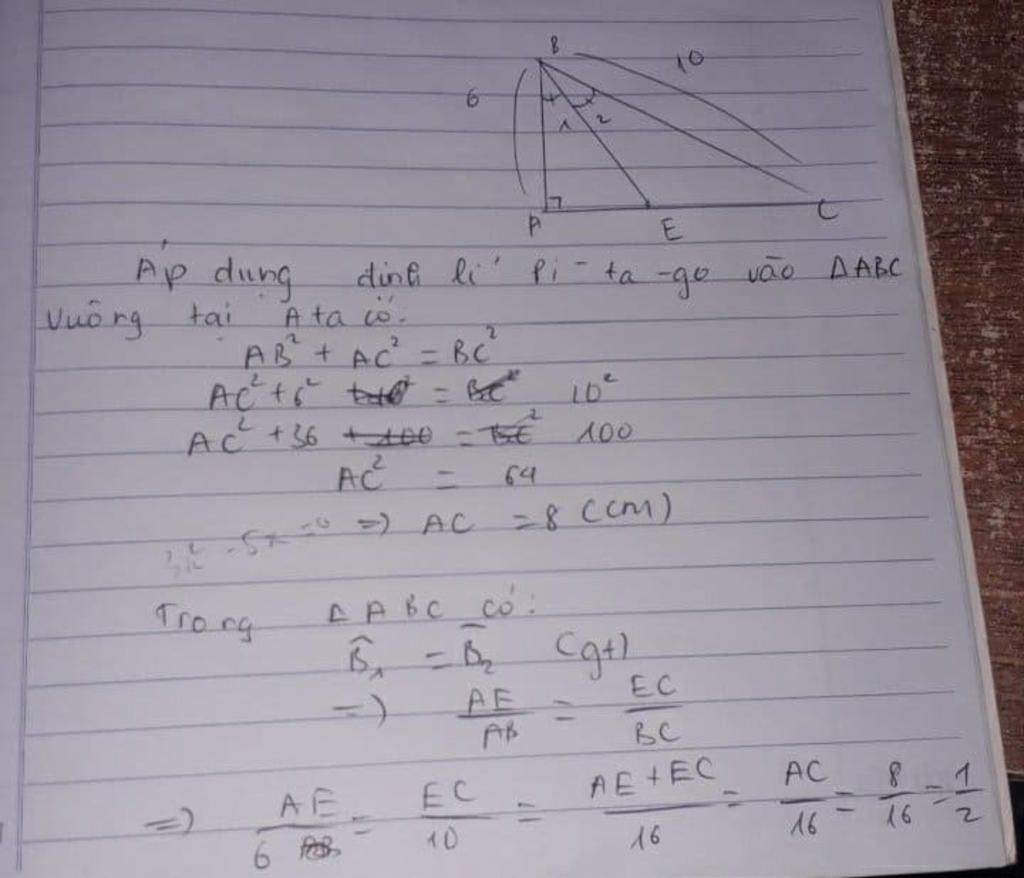 B
10
6
1 2
A E C
Áp dụng định lí Pi-ta-go vào ΔABC
vuông tại A ta có:
AB² + AC² = BC²
AC² + 6² = 10²
AC² + 36 = 100
AC² = 64
=> AC = 8 (cm)
Trong ΔABC có:
B̂₁ = B̂₂ (gt)
=> AE/AB = EC/BC
=> AE/6 = EC/10 = AE+EC/16 = AC/16 = 8/16 = 1/2